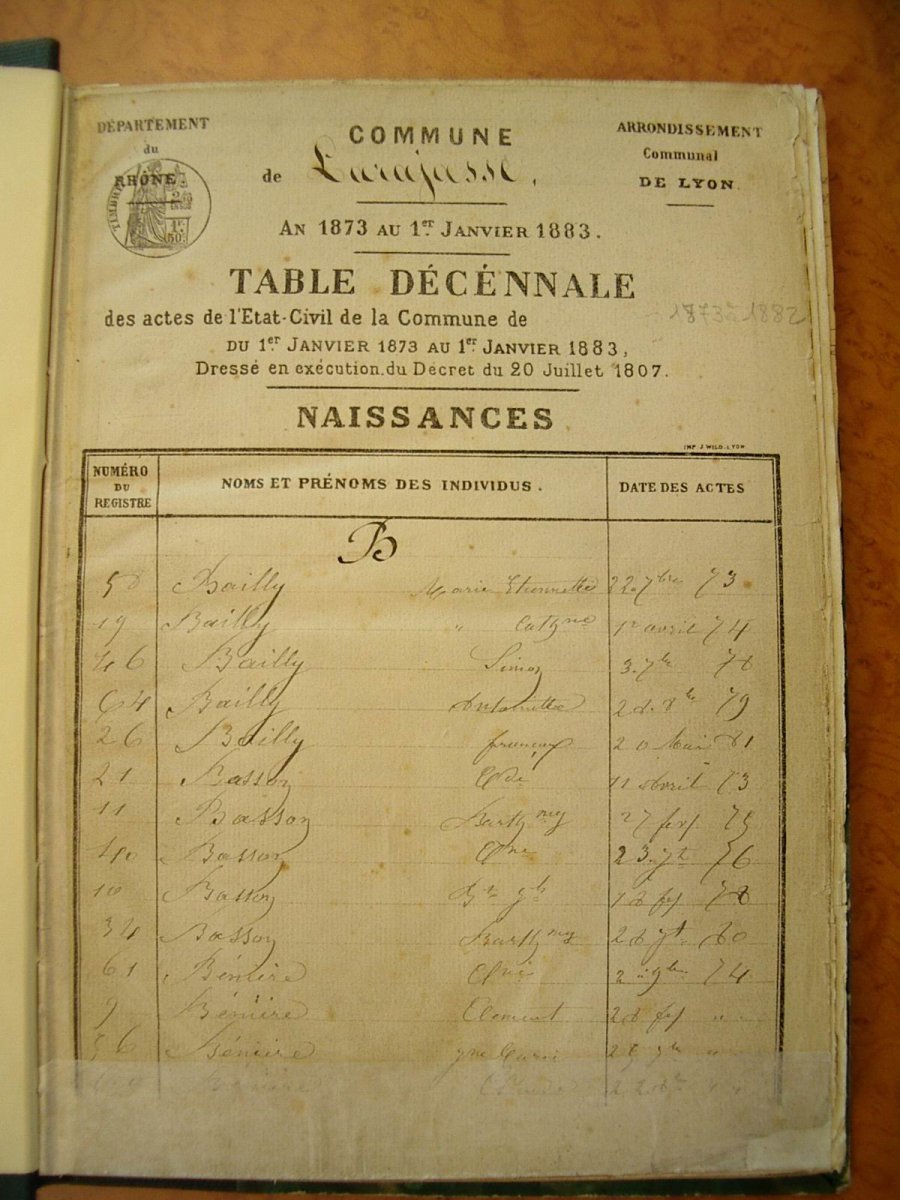 DÉPARTEMENT
du
RHÔNE.
COMMUNE
de Larajasse.
ARRONDISSEMENT
Communal
DE LYON.
AN 1873 AU 1er JANVIER 1883.
TABLE DÉCÉNNALE
des actes de l'Etat-Civil de la Commune de
1873-1882
DU 1er JANVIER 1873 AU 1er JANVIER 1883,
Dressé en exécution du Décret du 20 Juillet 1807.
NAISSANCES
IMP J. WILD. LYON
NUMÉRO DU REGISTRE NOMS ET PRÉNOMS DES INDIVIDUS. DATE DES ACTES
B
Bailly Marie Etiennette 22 7bre 73
19 Bailly " Cathne 1r avril 74
46 Bailly Simon 3 7bre 78
64 Bailly Antoinette 79
26 Bailly 20 Mai 81
21 Basson 11 Avril 73
11 Basson Barthmy 27
Basson 23 76
10 Basson 78
34 Basson Barthmy 28 80
61 Bénière 74
9 Bénière Clément 28 " "
Bénière Marie
Bénière Claude 22